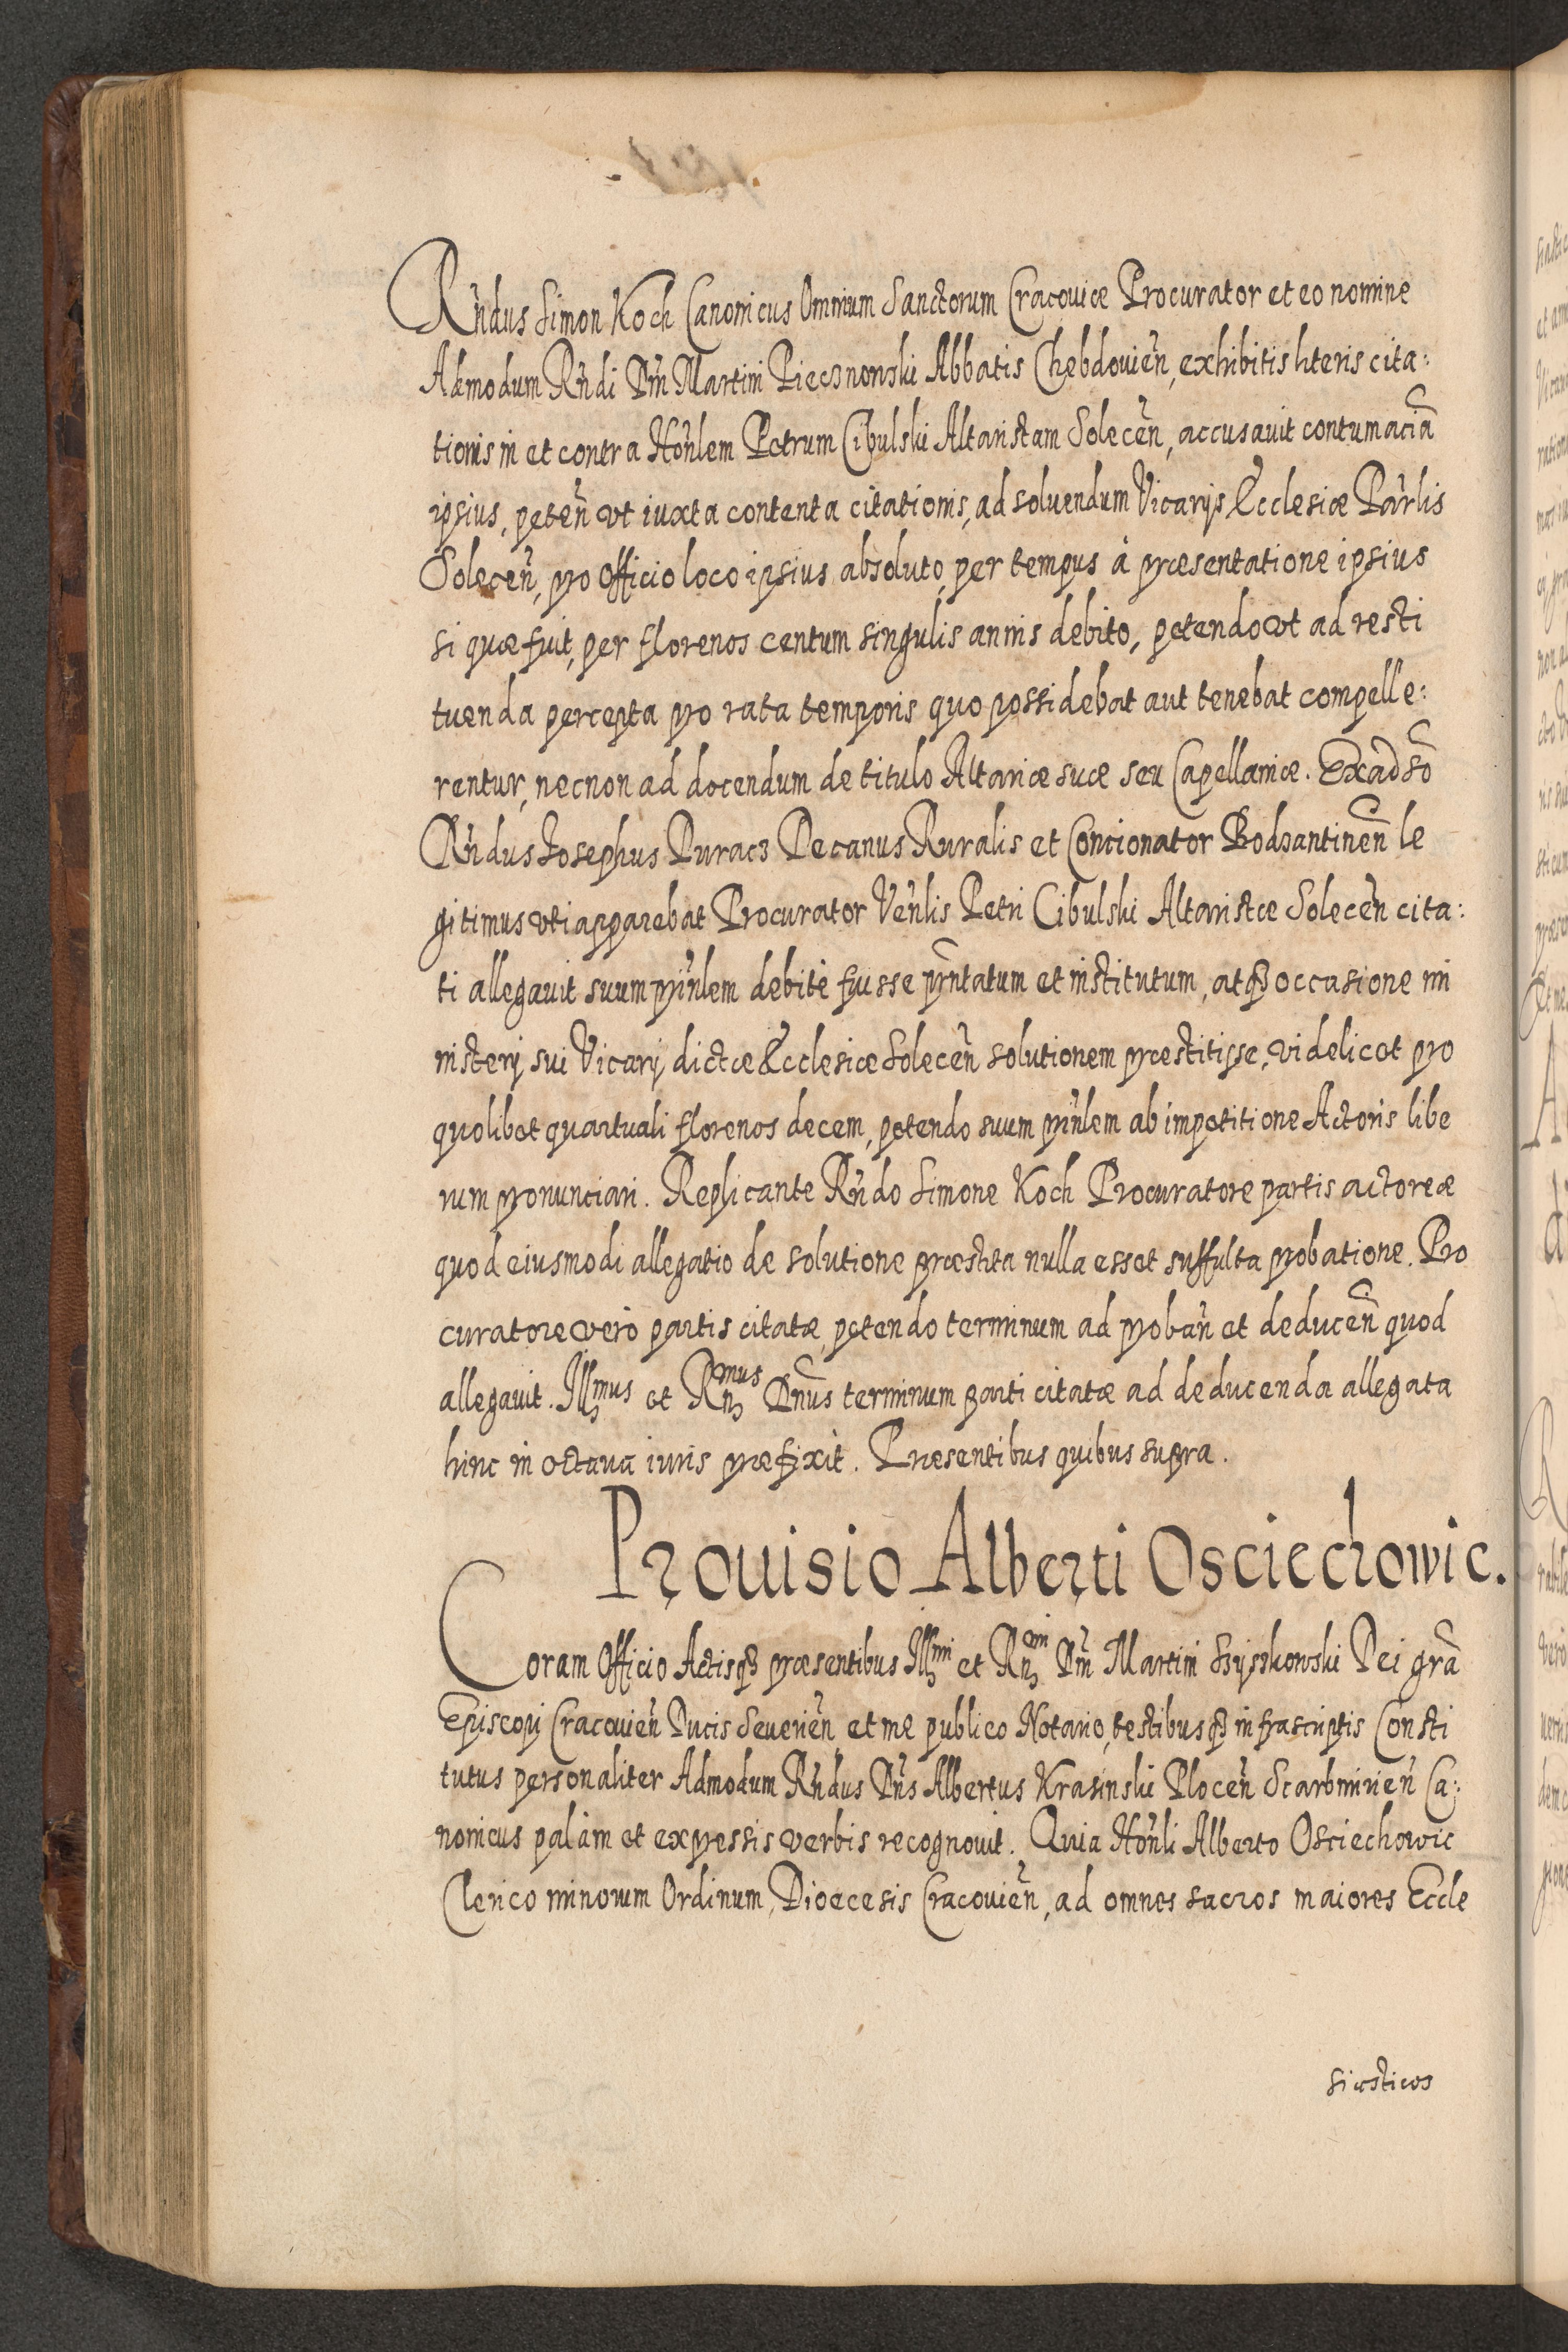 Rñdus Simon Koch Canonicus Omnium Sanctorum Cracouiæ Procurator et eo nomine
Admodum Rñdi Dñi Martini Piecznonski Abbatis Chebdouień, exhibitis literis cita:
tionis in et contra Hoñlem Petrum Cibulski Altaristam Soleceñ, accusauit contumaciã
ipsius, peteñ vt iuxta contenta citationis, ad soluendum Vicarijs Ecclesiæ Parlis
Soleceñ, pro officio loco ipsius absoluto, per tempus à præsentatione ipsius
si quæ fuit, per florenos centum singulis annis debito, petendo vt ad resti
tuenda percepta pro rata temporis quo possidebat aut tenebat compelle:
rentur, necnon ad docendum de titulo Altariæ suæ seu Capellaniæ. Ex adso
Rñdus Iosephus Duracz Decanus Ruralis et Concionator Bodzantineñ le
gitimus vti apparebat Procurator Veñlis Petri Cibulski Altaristæ Soleceñ cita:
ti allegauit suum pñnlem debitè fuisse pñtatum et institutum, atq3 occasione mi
nisterij sui Vicarij dictæ Ecclesiæ Soleceñ solutionem præstitisse, videlicet pro
quolibet quartuali florenos decem, petendo suum pñnlem ab impetitione Actoris libe
rum pronunciari. Replicante Rñdo Simone Koch Procuratore partis actoreæ
quod eiusmodi allegatio de solutione præstita nulla esset suffulta probatione. Pro
curatore verò partis citatæ, petendo terminum ad probañ et deduceñ quod
allegauit. Illmus et Rñmus Dñus terminum parti citatæ ad deducenda allegata
hinc in octaua iuris præfixit. Præsentibus quibus supra.
Prouisio Alberti Osciechowic.
Coram Officio Actisq3 præsentibus Illmi et Rñmi Dñi Martini Szyszkowski Dei grã
Episcopi Cracouieñ Ducis Seuerieñ et me publico Notario, testibusq3 infrascriptis Consti
tutus personaliter Admodum Rñdus Dñs Albertus Krasinski Ploceñ Scarbimirieñ Ca:
nonicus palàm et expressis verbis recognouit. Quia Hoñli Alberto Osciechowic
Clerico minorum Ordinum, Diœcesis Cracouieñ, ad omnes sacros maiores Eccle
siasticos